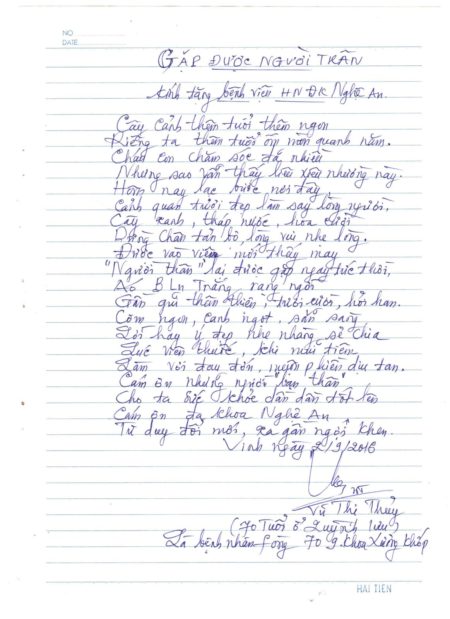 NO
DATE
GẶP ĐƯỢC NGƯỜI THÂN
Kính tặng bệnh viện HN ĐK Nghệ An.
Cây cảnh thêm tuổi thêm ngon
Riêng ta thêm tuổi ốm mòn quanh năm.
Cháu con chăm sóc đã nhiều
Nhưng sao vẫn thấy liêu xiêu nhường này.
Hôm nay lạc bước nơi đây
Cảnh quan tươi đẹp làm say lòng người.
Cây xanh, tháp nước, hoa cười
Dừng chân tản bộ, lòng vui nhẹ lòng.
Bước vào viện mới thấy may
"Người thân" lại được gặp ngay tức thời,
Áo BLu Trắng rạng ngời
Gần gũi thân thiện, tươi cười, hỏi han.
Cơm ngon, canh ngọt sẵn sàng
Lời hay ý đẹp nhẹ nhàng sẻ chia
Lúc viên thuốc, khi mũi tiêm
Làm vơi đau đớn, muộn phiền dịu tan.
Cảm ơn những người "bạn thân"
Cho ta sức khỏe dần dần tốt lên
Cảm ơn đa khoa Nghệ An
Tư duy đổi mới, xa gần ngợi khen.
Vinh ngày 2/9/2016
Vũ Thị Thủy
(70 Tuổi ở Quỳnh Lưu)
Là bệnh nhân fòng 709. Khoa Xương Khớp
HAI TIEN